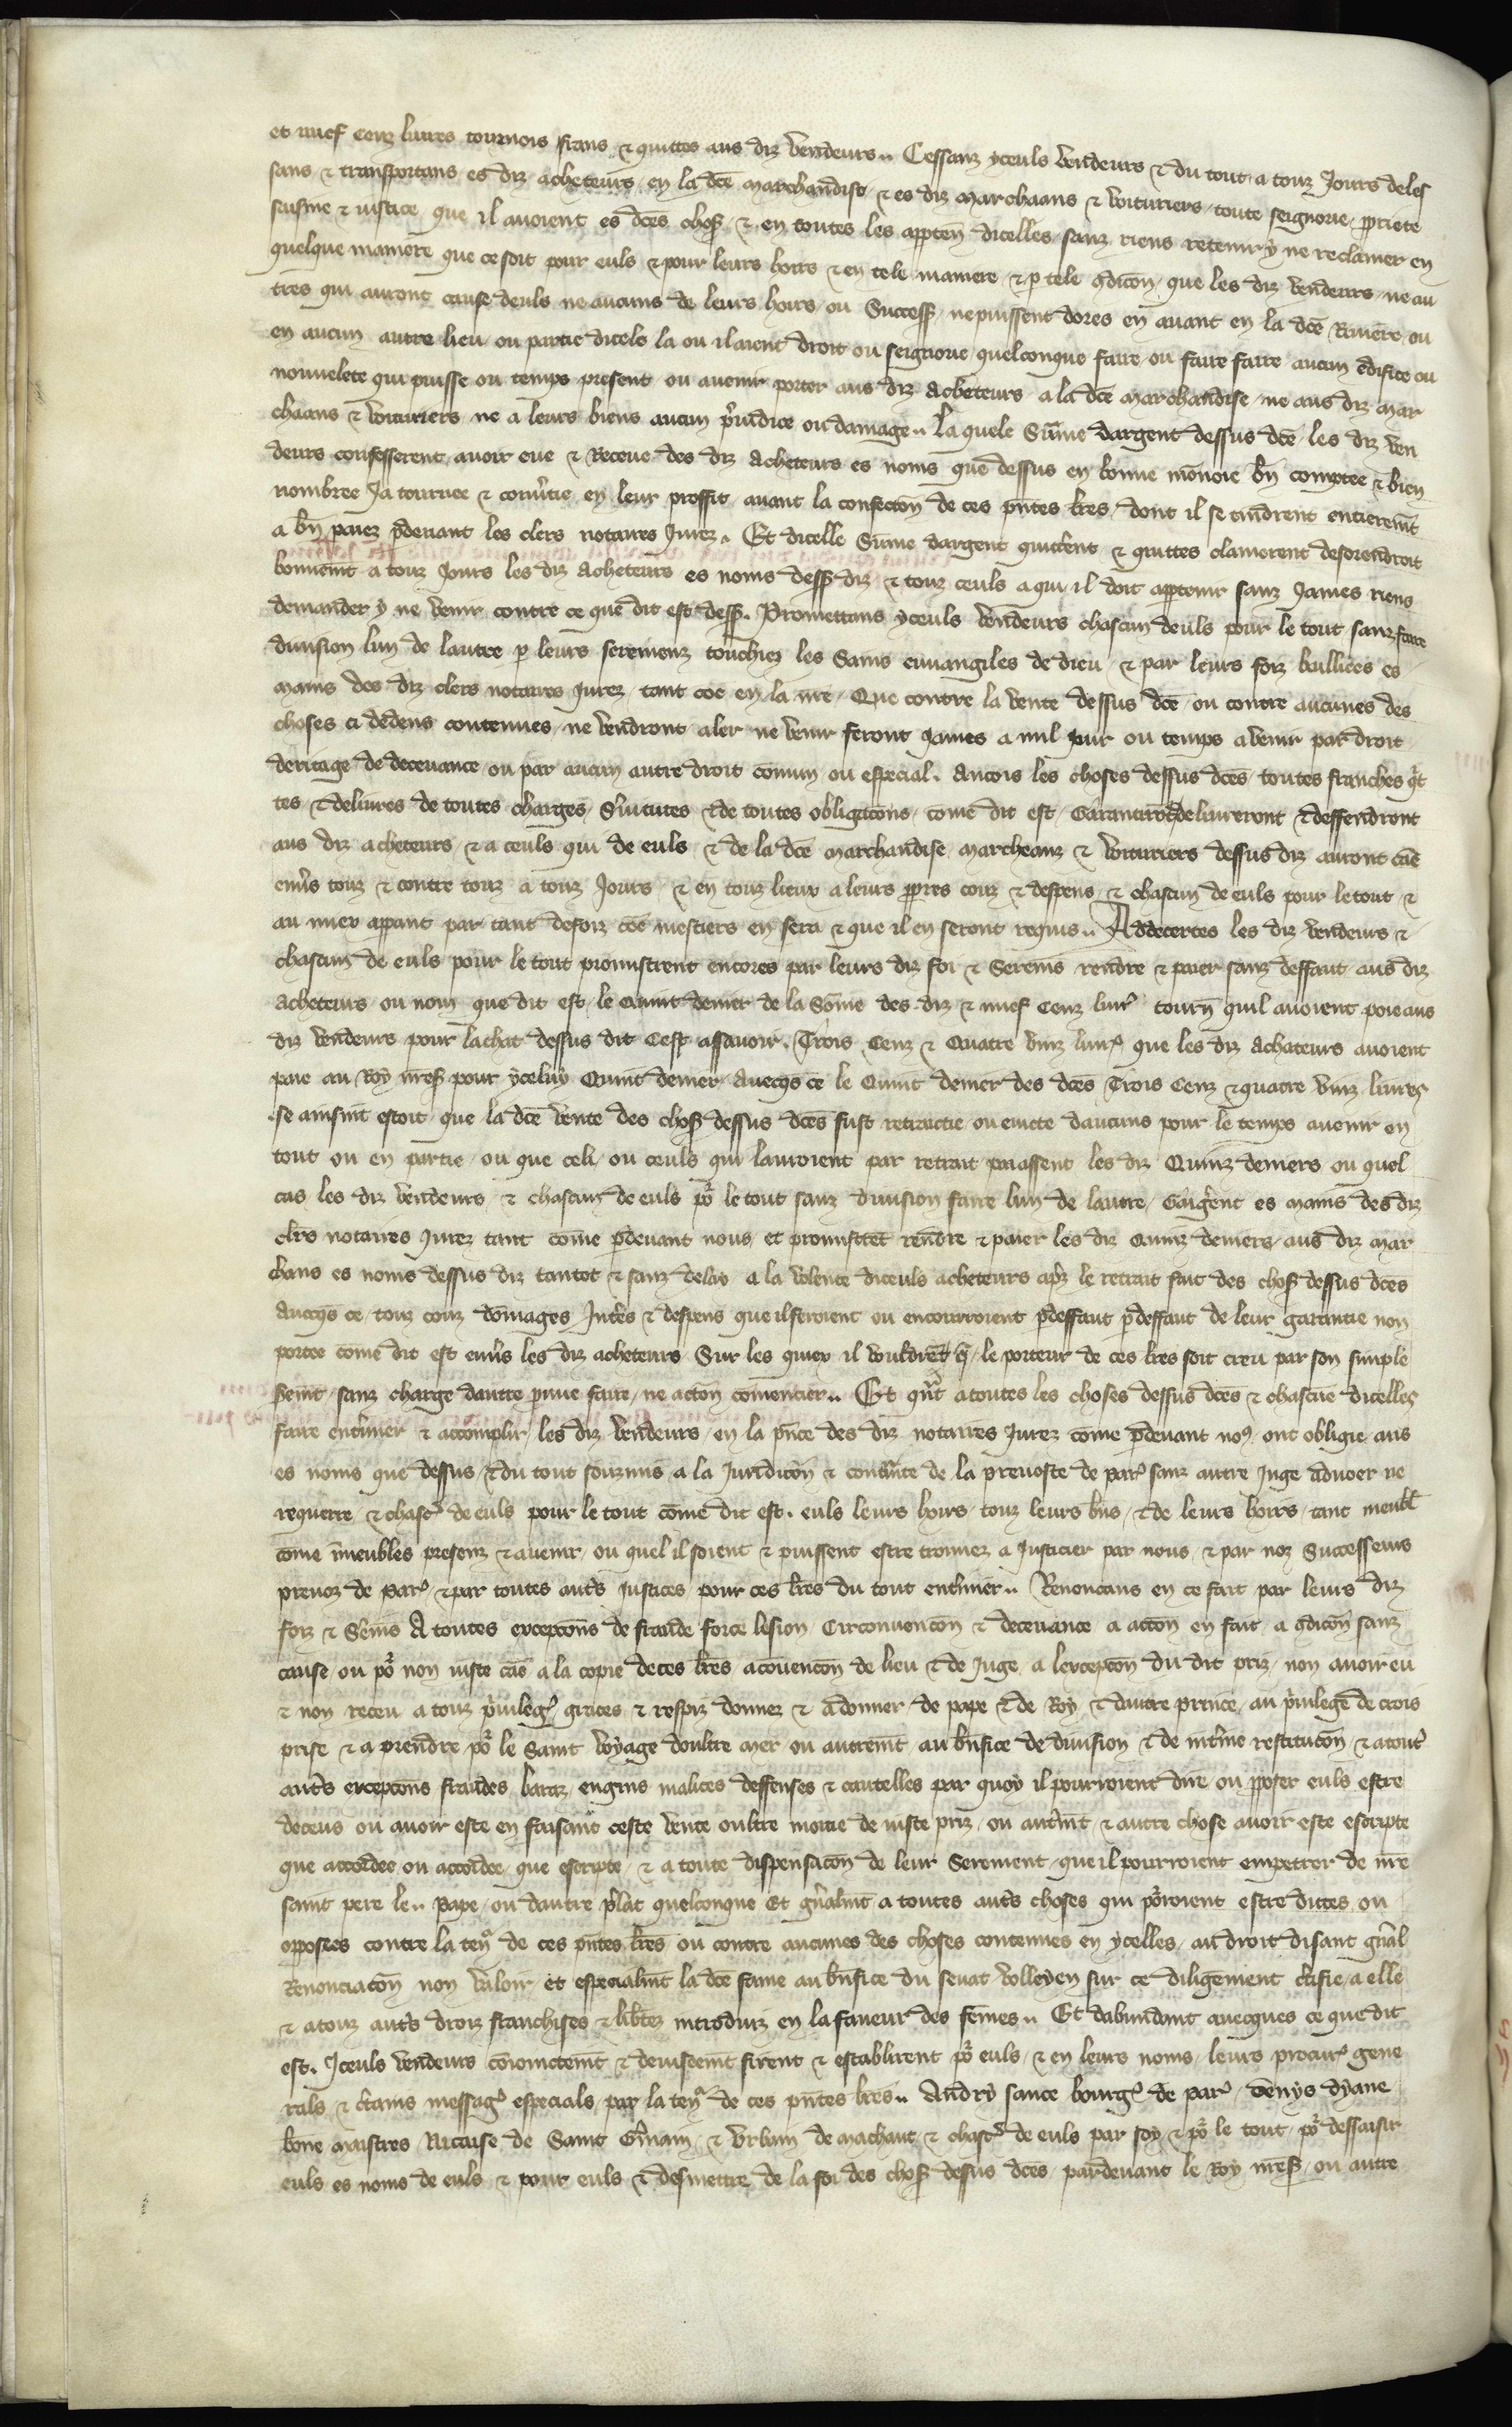 et nuef cenz livres tournois frans & quittes aus diz vendeurs.. Cessanz yceuls vendeurs & du tout a touz Jours deles
sans & transportans es diz acheteurs en la dce marchandise & es diz marchaans & voituriers toute seignorie ppriete
saisine & iustice que il avoient es dces chos & en toutes les apptenn dicelles sanz riens retenir y ne reclamer en
quelque maniere que ce soit pour euls & pour leurs hoirs & en tele maniere & p tele gdicon que les diz vendeurs ne au
tres qui auront cause deuls ne aucuns de leurs hoirs ou Success ne puissent dores en avant en la dce Riviere ou
en aucun autre lieu ou partie dicele la ou il aient droit ou seignorie quelconque faire ou faire faire aucun edifice ou
nouvelete qui puisse ou temps present ou avenir porter aus diz acheteurs a la dce marchandise ne aus diz mar
chaans & voituriers ne a leurs biens aucun piudice ou damage.. La quele Sume dargent dessus dce les diz ven
deurs confesserent avoir eue & Receue des diz acheteurs es noms que dessus en bonne monoie bn comptee & bien
nombree Ja tournee & convtie en leur proffit avant la confection de ces pntes lres dont il se tindrent entieremt
a bn paiez pdevant les clers notaires Jurez. Et dicelle Sume dargent quitterent & quittes clamerent desorendroit
bonnemt a touz Jours les diz acheteurs es noms dess diz & touz ceuls a qui il doit apptenir sanz James riens
demander y ne venir contre ce que dit est dess. Promettans yceuls vendeurs chascun deuls pour le tout sanz faire
division lun de lautre p leurs seremenz touchiez les Sains euvangiles de dieu & par leurs foiz baillees es
mains des diz clers notaires Jurez tant coe en la nre Que contre la vente dessus dce ou contre aucunes des
choses ci dedens contenues ne vendront aler ne venir feront James a nul Jour ou temps avenir par droit
deritage de decevance ou par aucun autre droit comun ou especial. Ancois les choses dessus dces toutes franches qit
tes & delivres de toutes charges svitutes & de toutes obligacons come dit est Garantiront delivreront & deffendront
aus diz acheteurs & a ceuls qui de euls & de la dce marchandise marcheanz & voituriers dessus diz auront cae
envs touz & contre touz a touz Jours & en touz lieux a leurs ppres couz & despens & chascun de euls pour le tout &
au miex appant par tant de foiz coe mestiers en sera & que il en seront requis.. Addecertes les diz vendeurs &
chascun de euls pour le tout promistrent encores par leurs diz foi & Seremens rendre & paier sanz deffaut aus diz
acheteurs ou nom que dit est le Quint denier de la Some des diz & nuef cenz livr tourn quil avoient poie aus
diz vendeurs pour lachat dessus dit Cest assavoir. Trois Cenz & Quatre vinz livr que les diz achateurs avoient
paie au Roy nres pour yceluy Quint denier avecqs ce le Quint denier des dces Trois Cenz & quatre vinz livres
se ainsint estoit que la dce vente des chos dessus dces fust retraictie ou evicte daucuns pour le temps avenir en
tout ou en partie ou que celi ou ceuls qui lauroient par retrait paiassent les diz Quinz deniers ou quel
cas les diz vendeurs & chascun de euls por le tout sanz division faire lun de lautre Gaigerent es mains des diz
clers notaires Jurez tant come pdevant nous et promistret rendre & paier les diz Quinz deniers aus diz mar
chans es noms dessus diz tantot & sanz delay a la volente diceuls acheteurs aps le retrait fait des chos dessus dces
avecqs ce touz couz domages Intes & despens que il feroient ou encourroient pdeffaut pdeffaut de leur garantie non
portee come dit est envs les diz acheteurs Sur les quiex il vouldret q le porteur de ces lres soit creu par son simple
semt sanz charge dautre pruve faire ne action comencier.. Et qnt a toutes les choses dessus dces & chascune dicelles
faire entriner & accomplir les diz vendeurs en la pnce des diz notaires Jurez come pdevant nos ont obligie aus
es noms que dessus & du tout souzmis a la Juridicion & contrainte de la prevoste de par sanz autre Juge advoer ne
requerre & chasc de euls pour le tout come dit est. euls leurs hoirs touz leurs bns & de leurs hoirs tant meubl
come imeubles presenz & avenir ou quel il soient & puissent estre trouvez a Justicier par nous & par noz Successeurs
prevoz de par & par toutes auts Justices pour ces lres du tout entriner.. Renoncans en ce fait par leurs diz
foiz & Semens A toutes excepcons de fraude force lesion Circonvencon & decevance a action en fait a gdicon sanz
cause ou por non iuste cae a la copie de ces lres a covencon de lieu & de Juge a lexcepcon du dit priz non avoir eu
& non receu a touz privileg graces & respiz donnez & a donner de pape & de Roy & dautre prince au privilege de crois
prise & a prendre por le Saint voyage doultre mer ou autremt au bnfice de division & de intrine restitucon & a tout
auts excepcons fraudes baraz engins malices deffenses & cautelles par quoy il pourroient dire ou pposer euls estre
deceus ou avoir este en faisant ceste vente oultre moitie de iuste priz ou autmt & autre chose avoir este escripte
que accordee ou accordee que escripte & a toute dispensacon de leur Serement que il pourroient empetrer de nre
saint pere le.. Pape ou dautre prlat quelconque Et gnalmt a toutes auts choses qui porroient estre dittes ou
opposees contre la ten de ces pntes lres ou contre aucunes des choses contenues en ycelles au droit disant gnal
Renonciacon non valoir et especialmt la dce fame au bnfice du senat velleyen sur ce diligemment ctifie a elle
& a touz auts droiz franchises & libtez introduiz en la faveur des femes.. Et dabundant avecques ce que dit
est. Iceuls vendeurs conioinctemt & deviseemt firent & establirent por euls & en leurs noms leurs procur gene
rals & ctains messag especials par la ten de ces pntes lres.. Andry sance bourg de par Denys dyane
bone maistres Nicaise de Saint Gmain & Urbain de machaut & chasc de euls par soy & por le tout por dessaisir
euls es noms de euls & pour euls & desmettre de la foi des chos desus dces pardevant le Roy nres ou autre